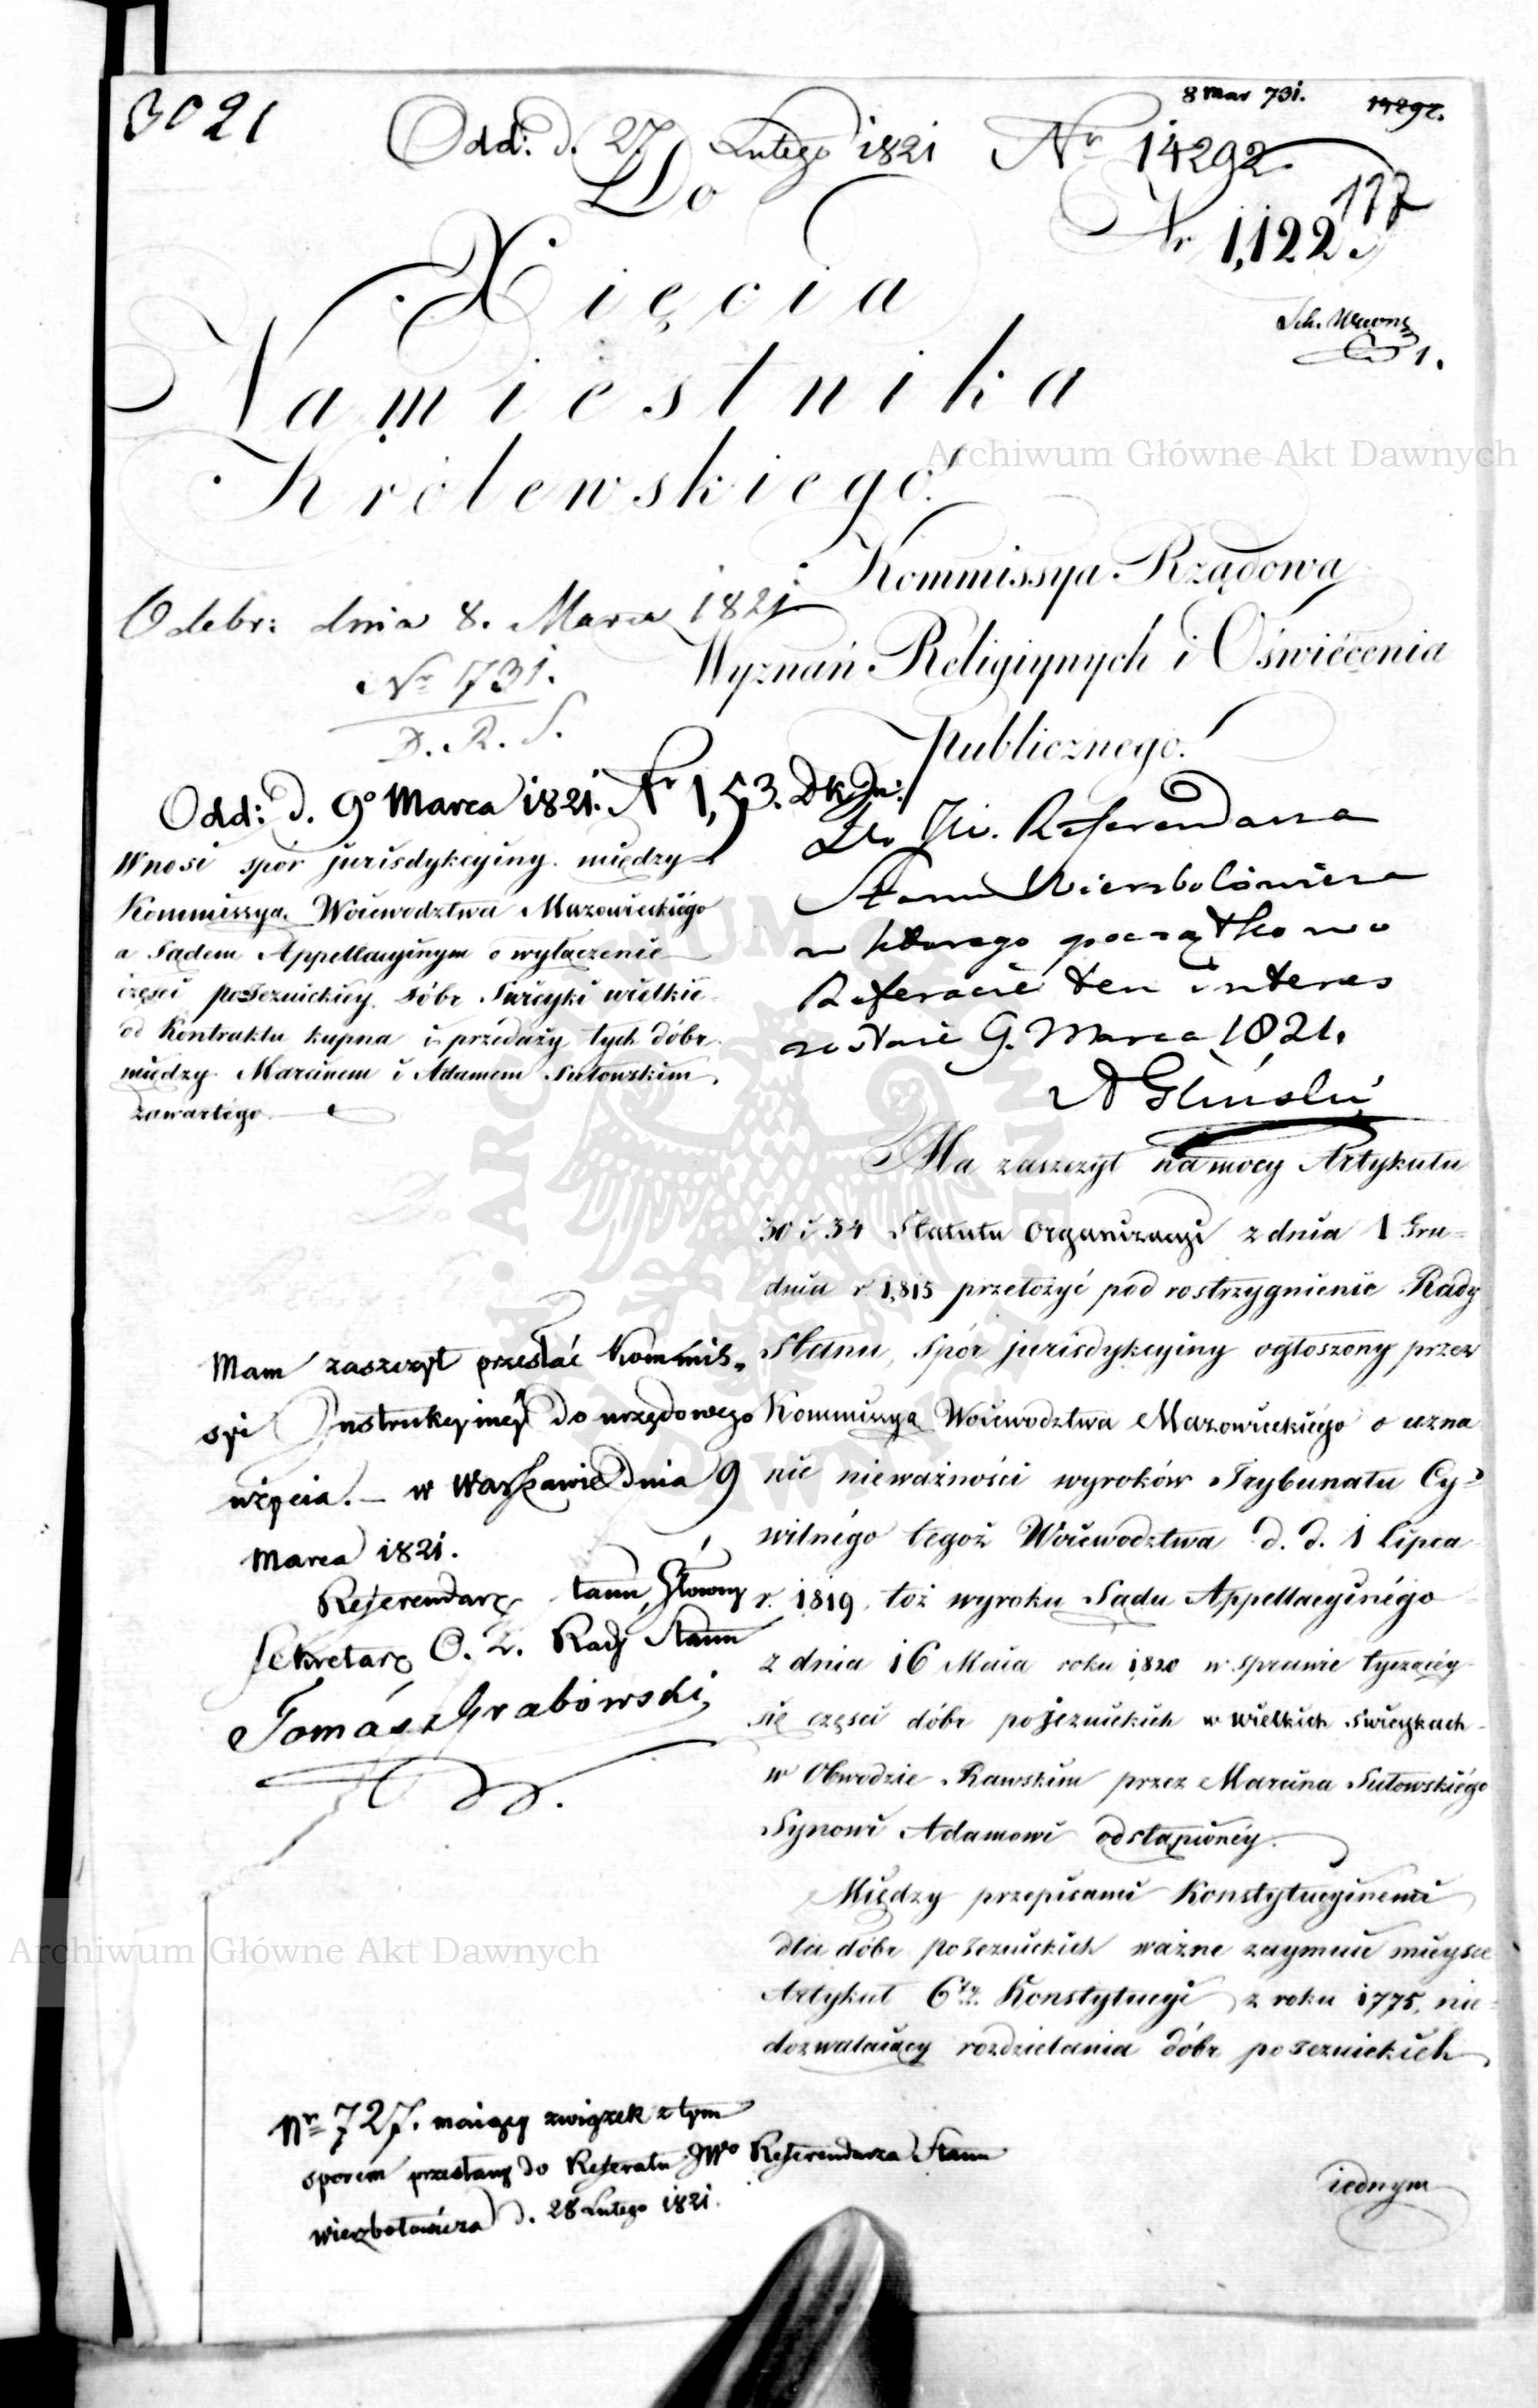 3021
8 Mar 731.
14292.
Odd: d. 27 Lutego 1821 Nr 14292.
117
Do
Nr 1,122.
Xięcia
Namiestnika
Królewskiego!
1.
Kommissya Rządowa
Wyznań Religiynych i Oświecenia
publicznego!
Odebr: dnia 8. Marca 1821
Nr 731.
D. R. S.
Odd: d. 9o Marca 1821. Nr 1,53.
Wnosi spór jurisdykcyiny między
Kommissyą Woiewodztwa Mazowieckiégo
a Sądem Appellacyinym o wyłączenie
części poJezuickiey dóbr Swięyki wielkie
od Kontraktu kupna i przedaży tych dóbr
między Marcinem i Adamem Sutowskim
zawartégo.
Do JW. Referendarza
Stanu Wierzbołowicza
w którego początkowo
Referacie ten interes
zostaie 9. Marca 1821.
A Gliński
Ma zaszczyt na mocy Artykułu
30 i 34 Statutu Organizacyi z dnia 1 Gru=
dnia r 1,815 przełożyć pod rostrzygnienie Rady
Stanu, spór jurisdykcyiny ogłoszony przez
Kommissyą Woiewodztwa Mazowieckiégo o uzna
nie nieważności wyroków Trybunału Cy=
wilnégo tegoż Woiewodztwa d. d. 1 Lipca
r. 1819, toż wyroku Sądu Appellacyinégo
z dnia 16 Maia roku 1820 w sprawie tyczącéy
się części dóbr poJezuickich w Wielkich Swięykach
w Obwodzie Rawskim przez Marcina Sutowskiégo
Synowi Adamowi odstąpionéy.
Mam zaszczyt przesłać Kommis=
syi Instrukcyinéy do urzędowego
użycia. – w Warszawie dnia 9
Marca 1821.
Referendarz Stanu, Główny
Sekretarz O. Z. Rady Stanu
Tomász Grabowski
Między przepisami Konstytucyinemi
dla dóbr poJezuickich ważne zaymuie mieysce
Artykuł 6ty Konstytucyi z roku 1775, nie=
dozwalaiący rozdzielania dóbr poJezuickich
Nr 727. maiący związek z tym
sporem przesłany do Referatu JWo Referendarza Stanu
Wierzbołowicza d. 28 Lutego 1821.
iednym
Archiwum Główne Akt Dawnych
Archiwum Główne Akt Dawnych